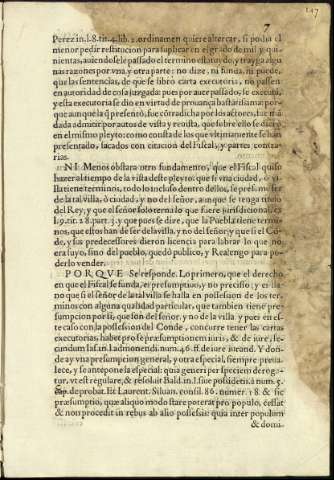 147
7
Perez in.l.8.tit.4.lib.2.ordinamen quiere altercar, si podia el
menor pedir restitucion para suplicar en el grado de mil y qui-
nientas, auiendosele passado el termino estatuydo, y trayga algu
nas razones por vna, y otra parte: no dize, ni funda, ni puede,
que las sentencias, de que se libró carta executoria, no passen
en autoridad de cosa juzgada: pues por auer passado, se executó,
y esta executoria se dio en virtud de prouança bastãtissima: por
que aunque la q̃ presentó, fue cõtradicha por los actores, fue mã
dada admitir por autos de vista y reuista, que sobre ello se dierõ
en el mismo pleyto: como consta de los que vltimamente se han
presentado, sacados con citacion del Fiscal, y partes contra-
rias.
NI Menos obstara otro fundamento, que el Fiscal quiso
hazer al tiempo de la vista deste pleyto: que si vna ciudad, ò vi-
lla tiene terminos, todo lo incluso dentro dellos, se presume ser
de la tal villa, ò ciudad, y no del señor, aunque se tenga titulo
del Rey, y que el señor solo terna lo que fuere jurisdicional, ex
l.9.tit.28.part.3. y que pues se dize, que la Puebla tiene termi-
nos, que estos han de ser de la villa, y no del señor: y que si el Cõ-
de, y sus predecessores dieron licencia para labrar lo que no
era suyo, sino del pueblo, quedó publico, y Realengo para po-
derlo vender.
PORQVE Se responde. Lo primero, que el derecho
en que el Fiscal se funda, es presumptiuo, y no preciso; y essa
no que si el señor de la tal villa se halla en possession de los ter-
minos con alguna qualidad particular, que tambien tiene pre-
sumpcion por sí, que son del señor, y no de la villa y pues en es-
te caso con la possession del Conde, concurre tener las cartas
executorias, habet pro se præsumptionem iuris, & de iure, se-
cundum Ias. in l.admonendi. num.46. ff. de iure iurand. Y don-
de ay vna presumpcion general, y otra especial, siempre preua-
lece, y se antepone la especial: quia generi per speciem deroga-
tur, vt est regulare, & resoluit Bald. in l. siue possidetis. 2. num.5.
Cap. de probat. Et Laurent. Siluan. consil. 86. numer. 18. & sic
præsumptio, quæ aliquo modo stare poterat pro populo, cessat
& non procedit in rebus ab alio possessis: quia inter populum
& domi-